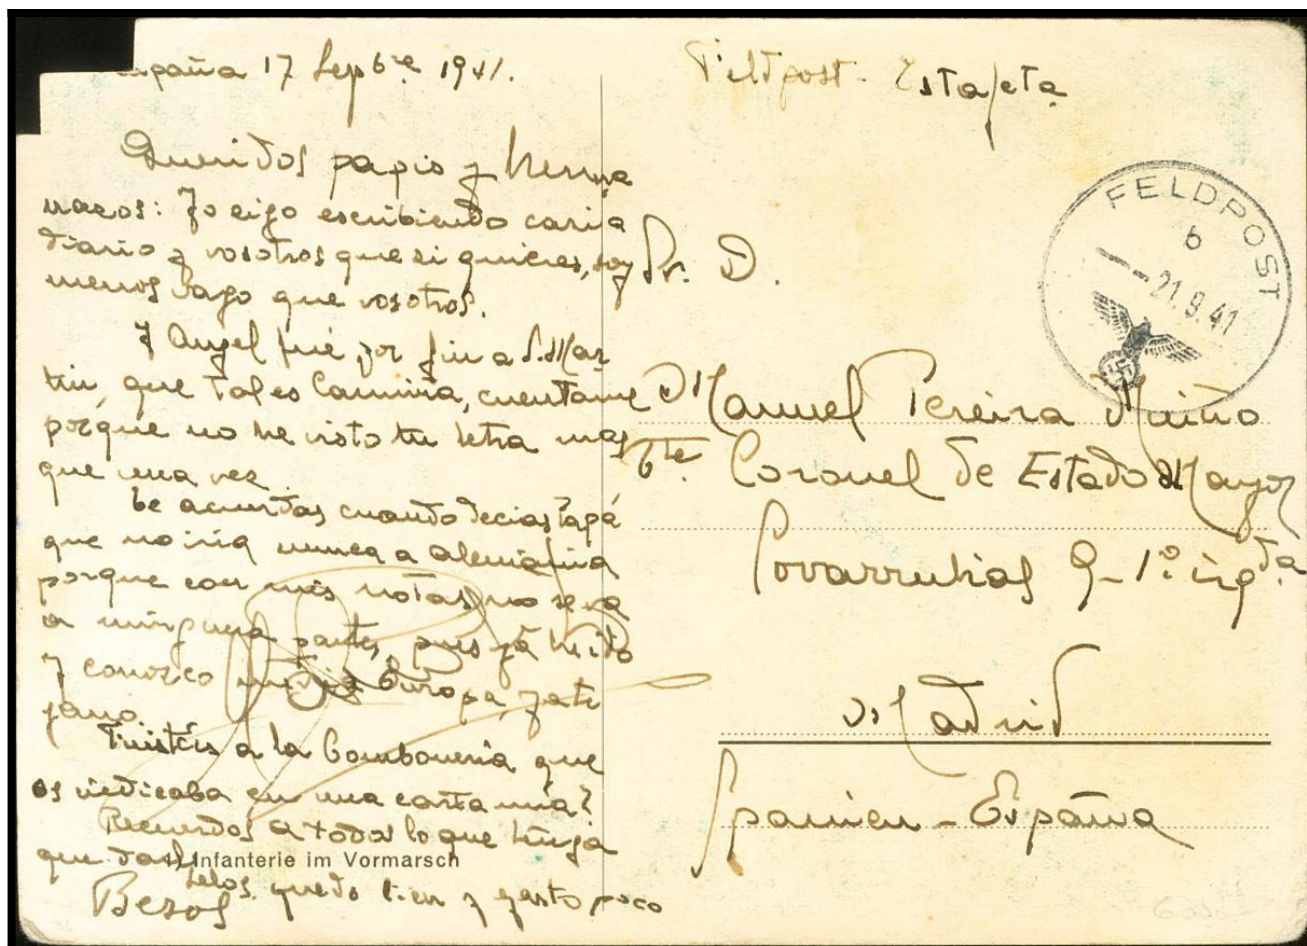 17 Sepbre 1941.
Queridos papis y herma
nazos: Yo sigo escribiendo casi a
diario y vosotros que si quieres, soy
menos vago que vosotros.
Y Angel fué por fin a S. Mar
tin, que tal es Camiña, cuentame
porqué no he visto tu letra mas
que una vez.
te acuerdas cuando decias Papá
que no iria nunca a Alemania
porque con mis notas no se va
a ninguna parte, pues ya he ido
y conozco media Europa, ya te
gano.
Fuisteis a la Bomboneria que
os indicaba en una carta mia?
Recuerdos a todos lo que tenga
que darselos quedo bien y gasto poco
Besos
Infanterie im Vormarsch
Feldpost - Estafeta
FELDPOST
b
-21.9.41
Sr. D.
Manuel Pereira Muiño
Tte. Coronel de Estado Mayor
Covarrubias 9-1º izqda
Madrid
Spanien - España